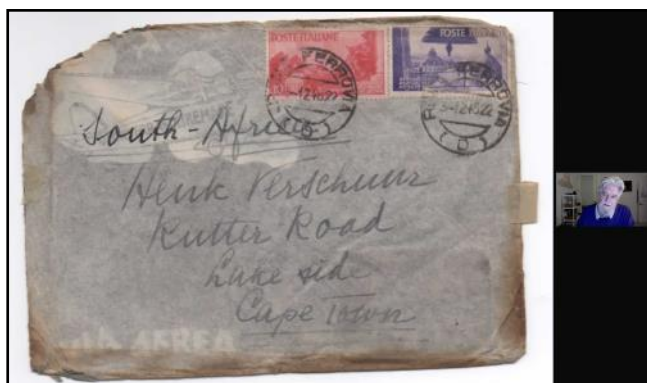 POSTE ITALIANE POSTE ITALIANE
FERROVIA
(D) (D)
South-Africa
Henk Verschuur
Rutter Road
Lake side
Cape Town
VIA AEREA